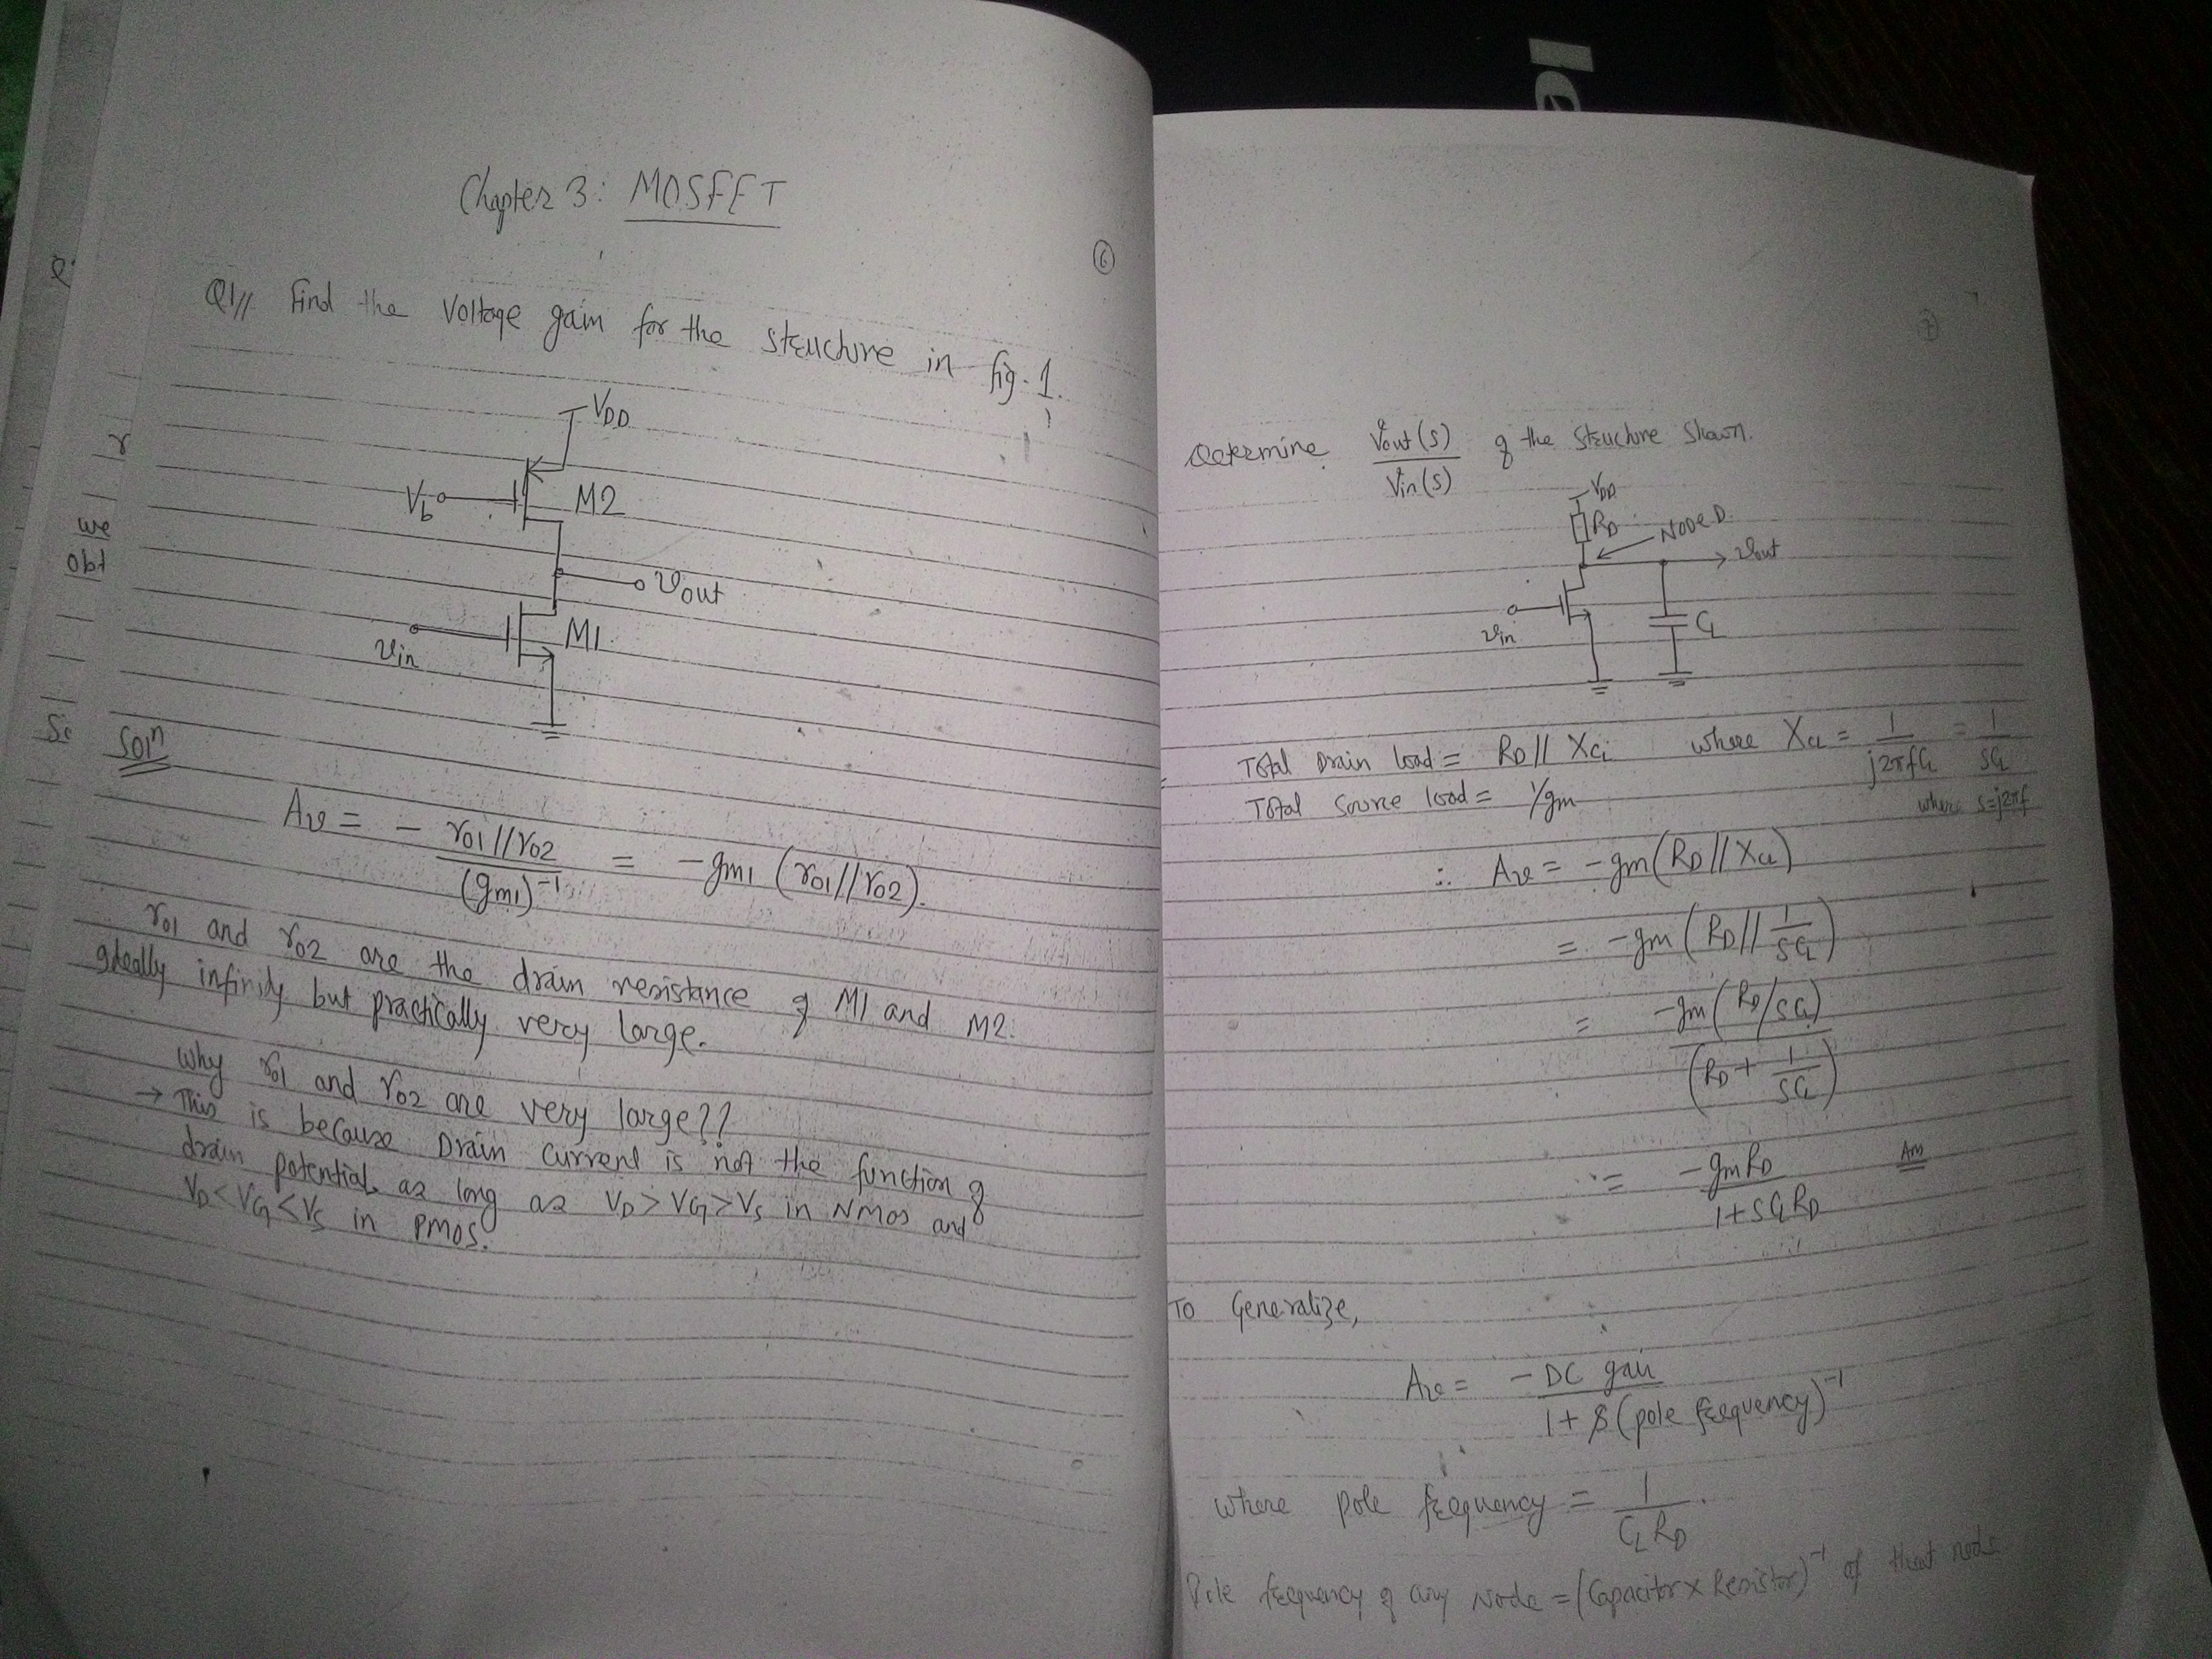 Chapter 3: MOSFET
6
Q1// Find the Voltage gain for the structure in fig-1.
VDD
Vb
M2
vout
M1
vin
Soln
Av = - ro1//ro2 / (gm1)^-1 = -gm1 (ro1//ro2).
ro1 and ro2 are the drain resistance of M1 and M2.
Ideally infinity but practically very large.
Why ro1 and ro2 are very large??
→ This is because Drain Current is not the function of
drain potential as long as VD > VG > VS in NMOS and
VD < VG < VS in PMOS.
we
obt
7
Determine Vout(s) / Vin(s) of the structure shown.
VDD
RD
NODE D
vout
vin
CL
Total Drain load = RD // XCL where XCL = 1/j2πfCL = 1/sCL
Total Source load = 1/gm where s=j2πf
∴ Av = -gm(RD // XCL)
= -gm(RD // 1/sCL)
= -gm(RD/sCL) / (RD + 1/sCL)
= -gmRD / 1+sCLRD Ans
To Generalize,
Av = - DC gain / 1 + s(pole frequency)^-1
where pole frequency = 1 / CLRD.
Pole frequency of any Node = (Capacitor x Resistor)^-1 of that node